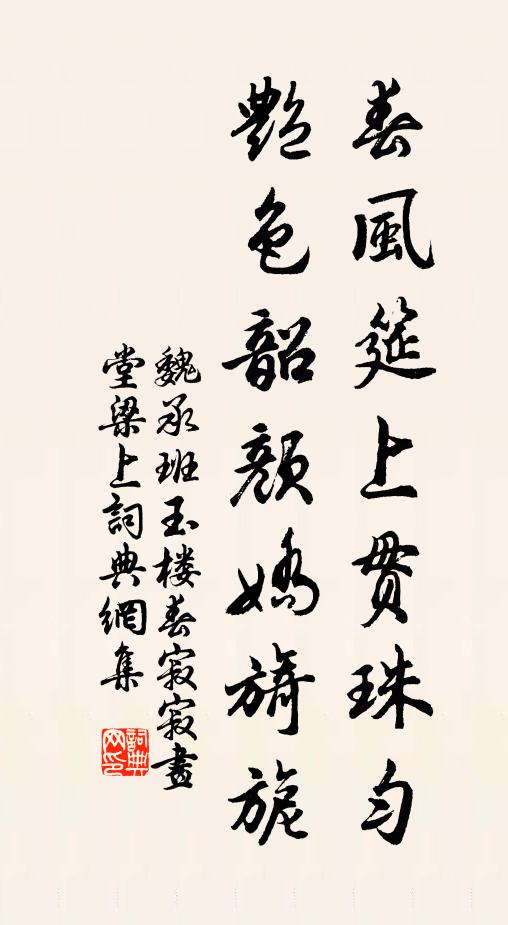 春風筵上貫珠勻
艷色韶顏嬌旖旎
魏承班玉楼春寂寂畫
堂梁上詞典網集
詞典
网印